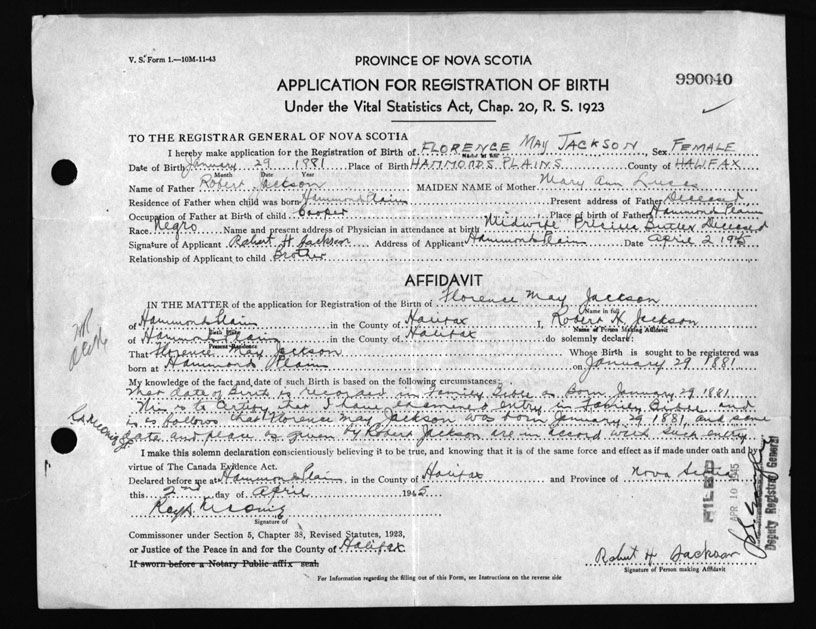 V. S. Form 1.—10M-11-43
PROVINCE OF NOVA SCOTIA
990040
APPLICATION FOR REGISTRATION OF BIRTH
Under the Vital Statistics Act, Chap. 20, R. S. 1923
TO THE REGISTRAR GENERAL OF NOVA SCOTIA
I hereby make application for the Registration of Birth of FLORENCE MAY JACKSON Sex FEMALE
Date of Birth January 29 1881 Place of Birth HAMMONDS PLAINS County of HALIFAX
Month Date Year
Name of Father Robert Jackson MAIDEN NAME of Mother Mary Ann Lucas
Residence of Father when child was born Hammond Plain Present address of Father Deceased
Occupation of Father at Birth of child Cooper Place of birth of Father Hammond Plain
Race Negro Name and present address of Physician in attendance at birth Midwife Butler Deceased
Signature of Applicant Robert H Jackson Address of Applicant Hammond Plain Date April 2 1945
Relationship of Applicant to child Brother
AFFIDAVIT
IN THE MATTER of the application for Registration of the Birth of Florence May Jackson
Name in full
of Hammond Plain in the County of Halifax I, Robert H Jackson
Birth Place Name of Person Making Affidavit
of Hammond Plain in the County of Halifax do solemnly declare:
Present Residence
That Florence May Jackson Whose Birth is sought to be registered was
born at Hammond Plain on January 29 1881
My knowledge of the fact and date of such Birth is based on the following circumstances:
That date of Birth is recorded in Family Bible as Born January 29 1881
This is to Certify that I have examined entry in Family Bible and
is as follows that Florence May Jackson was born January 29 1881, and same
date and place as given by Robert Jackson are in accord with such entry
I make this solemn declaration conscientiously believing it to be true, and knowing that it is of the same force and effect as if made under oath and by
virtue of The Canada Evidence Act.
Declared before me at Hammond Plain in the County of Halifax and Province of Nova Scotia
this 2nd day of April 1945
Signature of
Commissioner under Section 5, Chapter 38, Revised Statutes, 1923,
or Justice of the Peace in and for the County of Halifax
If sworn before a Notary Public affix seal
Robert H Jackson
Signature of Person making Affidavit
For Information regarding the filling out of this Form, see Instructions on the reverse side
FILED
APR 10 1945
Deputy Registrar General